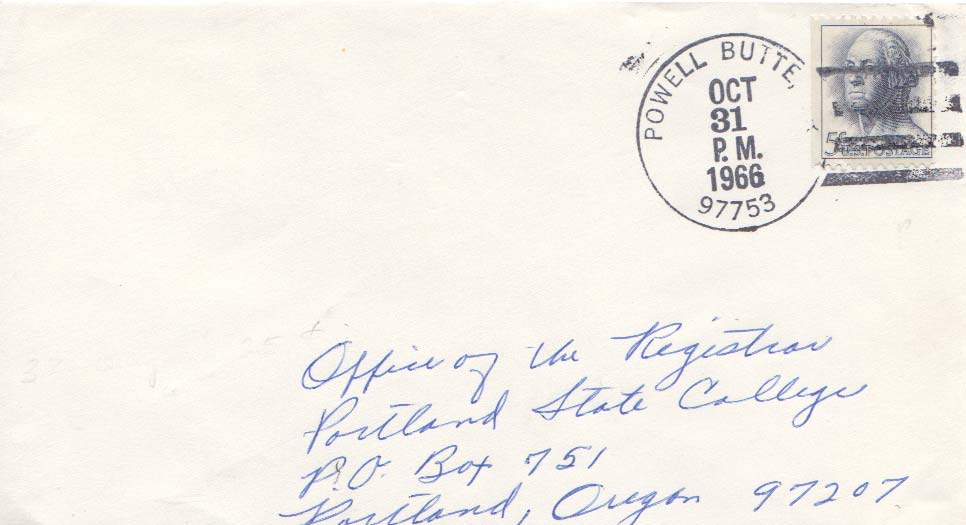 POWELL BUTTE,
OCT
31
P. M.
1966
97753
5¢ U.S. POSTAGE
Office of the Registrar
Portland State College
P.O. Box 751
Portland, Oregon 97207